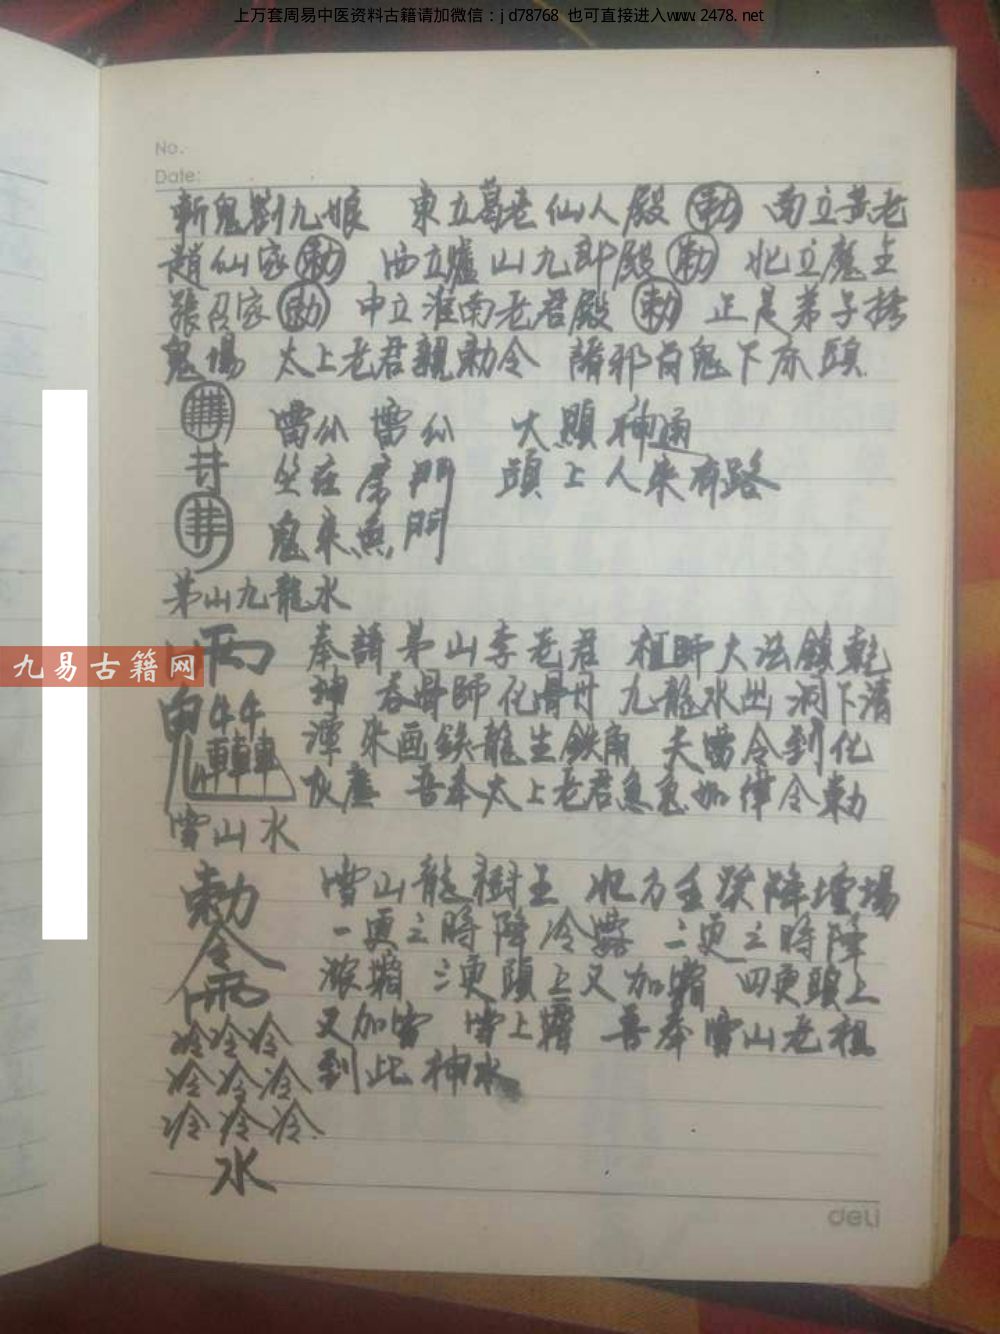 上万套周易中医资料古籍请加微信：jd78768 也可直接进入www.2478.net
No.
Date:
斬鬼劉九娘 東立葛老仙人殿 勅 南立黃老
趙仙家 勅 西立爐山九郎殿 勅 北立魔王
張召家 勅 中立淮南老君殿 勅 正是弟子
鬼場 太上老君親勅令 諸邪百鬼下亦頭
雷公 雷公 大顯神通
坐在 門 頭上人來有路
鬼來無門
茅山九龍水
九易古籍网
奉請茅山李老君 祖師大法鎮乾
坤 吞骨師化骨丹 九龍水出 洞下清
潭 來画鉄龍生鉄角 天雷令到化
灰塵 吾奉太上老君急急如律令勅
雪山水
勅
令
雨
冷冷冷
冷冷冷
冷冷冷
水
雪山龍樹王 北方 降壇場
一更之時降冷露 二更之時降
濃霜 三更頭上又加霜 四更頭上
又加雪 雪上霜 吾奉雪山老祖
到此神水
deli